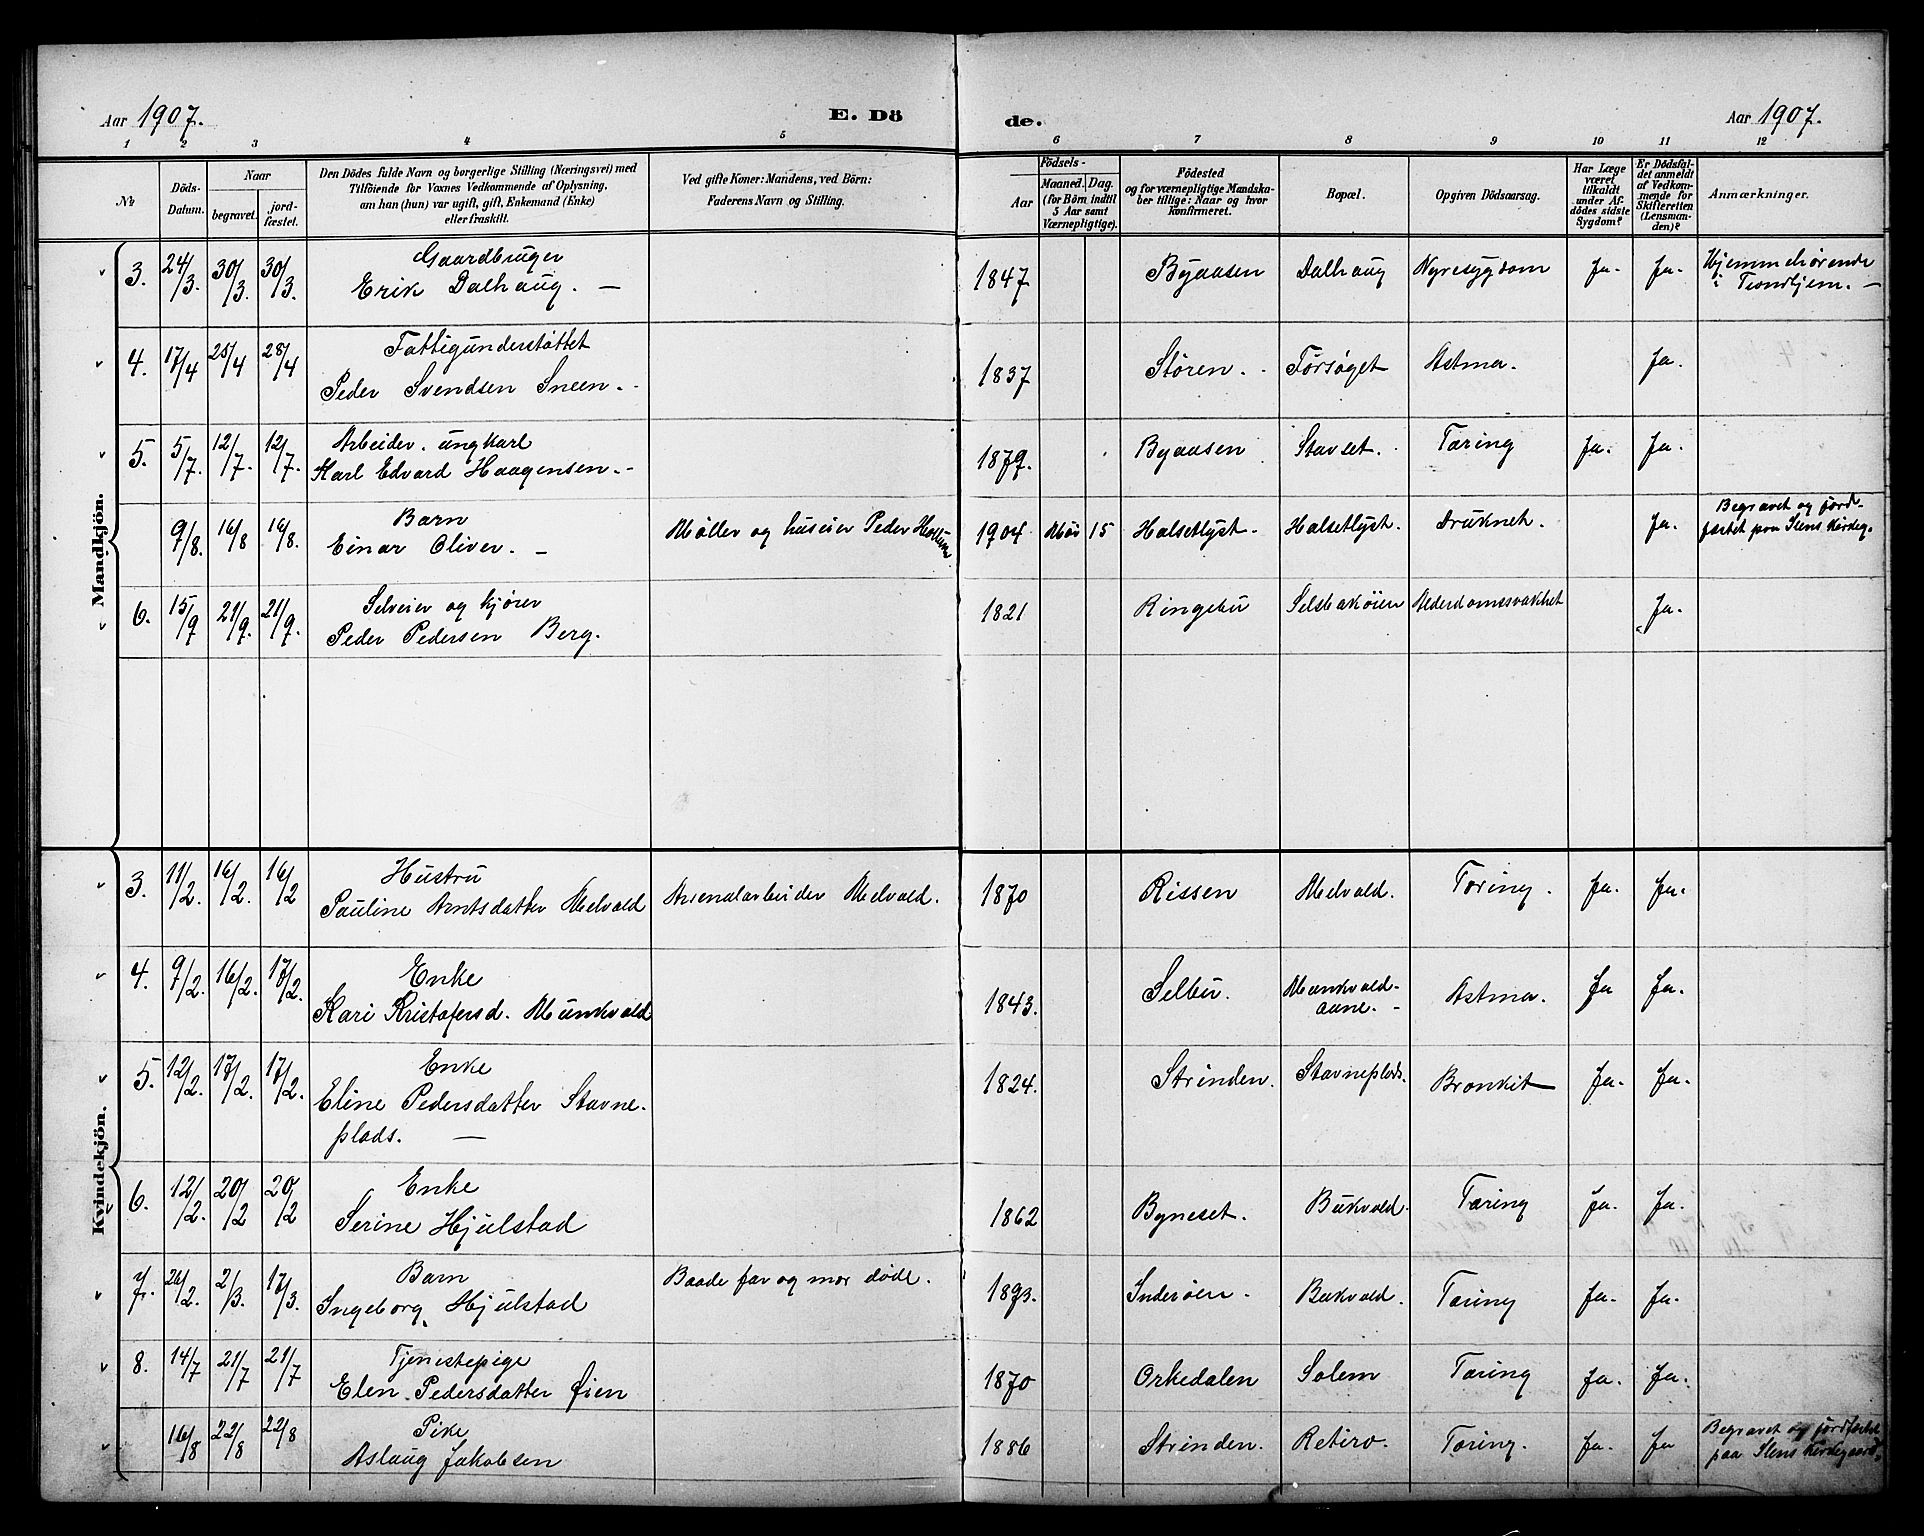 Aar 1907. E. Dö de. Aar 1907.
1 2 3 4 5 6 7 8 9 10 11 12
No
Döds-Datum.
Naar
begravet.
jord-fæstet.
Den Dödes fulde Navn og borgerlige Stilling (Næringsvei) med
Tilföiende for Voxnes Vedkommende af Oplysning,
om han (hun) var ugift, gift, Enkemand (Enke)
eller fraskilt.
Ved gifte Koner: Mandens, ved Börn:
Faderens Navn og Stilling.
Födsels-
Aar
Maaned. Dag.
(for Börn indtil
5 Aar samt
Værnepligtige).
Födested
og for værnepligtige Mandska-
ber tillige: Naar og hvor
konfirmeret.
Bopæl.
Opgiven Dödsaarsag.
Har Læge
været
tilkaldt
under Af-
dödes sidste
Sygdom?
Er Dödsfal-
det anmeldt
af Vedkom-
mende for
Skifteretten
(Lensman-
den)?
Anmærkninger.
Mandkjön.
3. 24/3. 30/3. 30/3. Gaardbruger
Erik Dalhaug. — 1847 Byaasen Dalhaug Nyresygdom Ja. Ja. Hjemmehørende
i Trondhjem. —
4. 17/4 25/4 28/4 Fattigunderstøttet
Peder Svendsen Sneen. 1837 Støren. Forsøget Astma. Ja.
5. 5/7. 12/7. 12/7. Arbeider. ungkarl
Karl Edvard Haagensen. - 1879. Byaasen Stavset. Tæring Ja. Ja.
9/8. 16/8 16/8. Barn
Einar Oliver. — Møller og huseier Peder 1904 Mai 15 Halsetlyst. Halsetlyst. Druknet. Ja. Begravet og jord-
fæstet paa Ilens Kirkeg.
6. 15/9 21/9. 21/9. Selveier og kjører
Peder Pedersen Berg. 1821 Ringebu Selsbakøien Alderdomssvakhet Ja.
Kvindekjön.
3. 11/2. 16/2. 16/2 Hustru
Pauline Arntsdatter Melvald Arsenalarbeider Melvald. 1870 Rissen Melvald. Tæring. Ja. Ja.
4. 9/2. 16/2. 17/2. Enke
Kari Kristofersd. Munkvold 1843. Selbu. Munkvold-
aune. - Astma. Ja Ja.
5. 12/2. 17/2. 17/2. Enke
Eline Pedersdatter Stavne-
plads. — 1824. Strinden. Stavneplads. Bronkit Ja. Ja.
6. 12/2. 20/2 20/2 Enke
Serine Hjulstad 1862 Byneset. Bukvold. Tæring Ja. Ja.
7. 26/2. 2/3. 17/3. Barn
Ingeborg Hjulstad Baade far og mor døde. 1893. Inderøen. Bukvold. Tæring Ja. Ja.
8. 14/7 21/7 21/7 Tjenestepige
Elen Pedersdatter Øien 1870 Orkedalen Solem Tæring Ja. Ja.
16/8 22/8 22/8 Pike
Aslaug Jakobsen 1886 Strinden. Retiro. Tæring. Ja. Ja Begravet og jordfæstet
paa Ilens Kirkegaard.